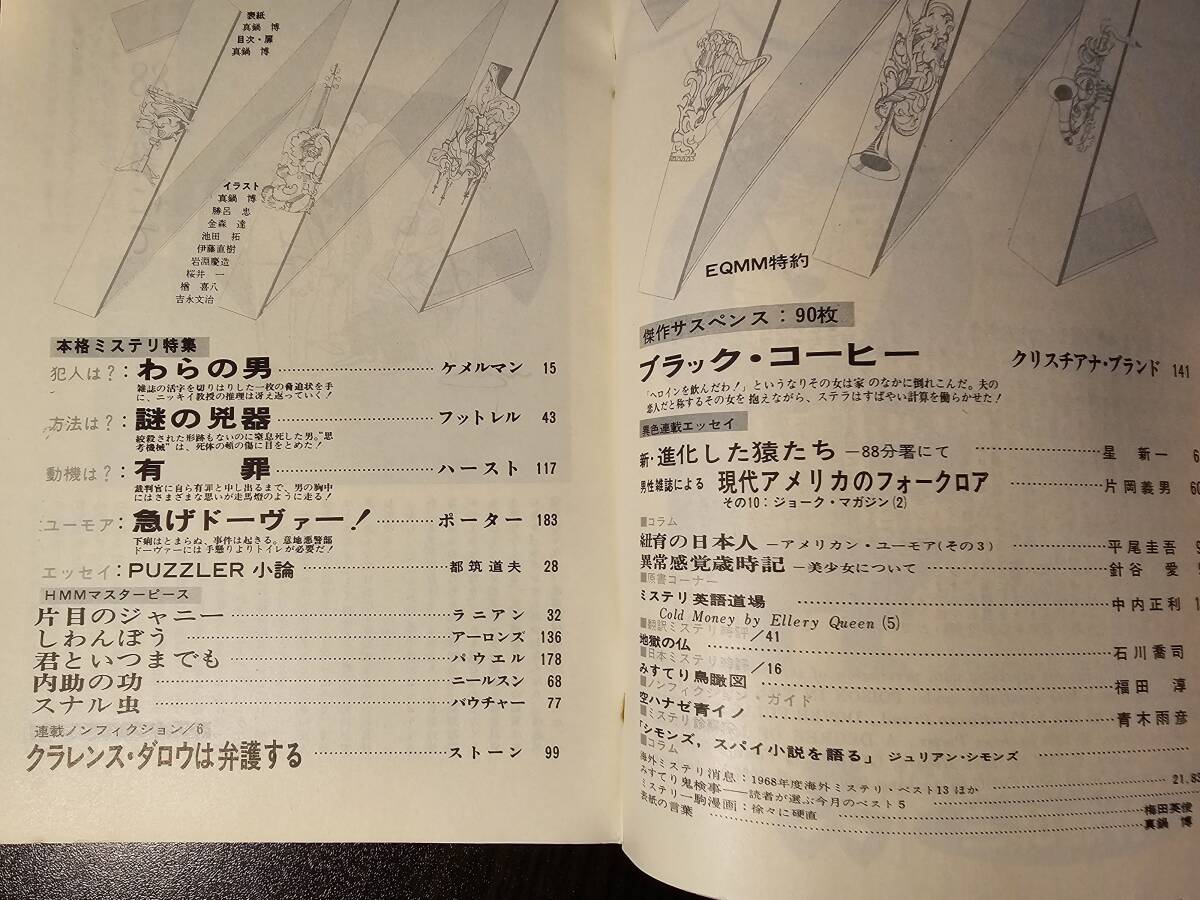 表紙
真鍋 博
目次・扉
真鍋 博
イラスト
真鍋 博
勝呂 忠
金森 達
池田 拓
伊藤直樹
岩淵慶造
桜井 一
楢 喜八
吉永文治
本格ミステリ特集
犯人は?:わらの男 ケメルマン 15
雑誌の活字を切りはりした一枚の脅迫状を手
に、ニッキイ教授の推理は冴え返っていく!
方法は?:謎の兇器 フットレル 43
絞殺された形跡もないのに窒息死した男。"思
考機械"は、死体の頰の傷に目をとめた!
動機は?:有罪 ハースト 117
裁判官に自ら有罪と申し出るまで、男の胸中
にはさまざまな思いが走馬燈のように走る!
ユーモア:急げドーヴァー! ポーター 183
下痢はとまらぬ、事件は起きる。意地悪警部
ドーヴァーには手懸りよりトイレが必要だ!
エッセイ:PUZZLER小論 都筑道夫 28
HMMマスターピース
片目のジャニー ラニアン 32
しわんぼう アーロンズ 136
君といつまでも パウエル 178
内助の功 ニールスン 68
スナル虫 バウチャー 77
連載ノンフィクション/6
クラレンス・ダロウは弁護する ストーン 99
EQMM特約
傑作サスペンス:90枚
ブラック・コーヒー クリスチアナ・ブランド 141
「ヘロインを飲んだわ!」というなりその女は家のなかに倒れこんだ。夫の
恋人だと称するその女を抱えながら、ステラはすばやい計算を働らかせた!
異色連載エッセイ
新・進化した猿たち —88分署にて 星 新一
男性雑誌による 現代アメリカのフォークロア 片岡義男 60
その10:ジョーク・マガジン(2)
■コラム
紐育の日本人 —アメリカン・ユーモア(その3) 平尾圭吾
異常感覚歳時記 —美少女について 針谷 愛
■原書コーナー
ミステリ英語道場 中内正利
Cold Money by Ellery Queen (5)
■翻訳ミステリ時評/41
地獄の仏 石川喬司
■日本ミステリ時評/16
みすてり鳥瞰図 福田 淳
■ノンフィクション・ガイド
空ハナゼ青イノ 青木雨彦
■ミステリ診断
「シモンズ,スパイ小説を語る」 ジュリアン・シモンズ
■コラム
海外ミステリ消息:1968年度海外ミステリ・ベスト13 ほか 21,83
みすてり鬼検事——読者が選ぶ今月のベスト5
ミステリ一駒漫画:徐々に硬直 梅田英俊
表紙の言葉 真鍋 博